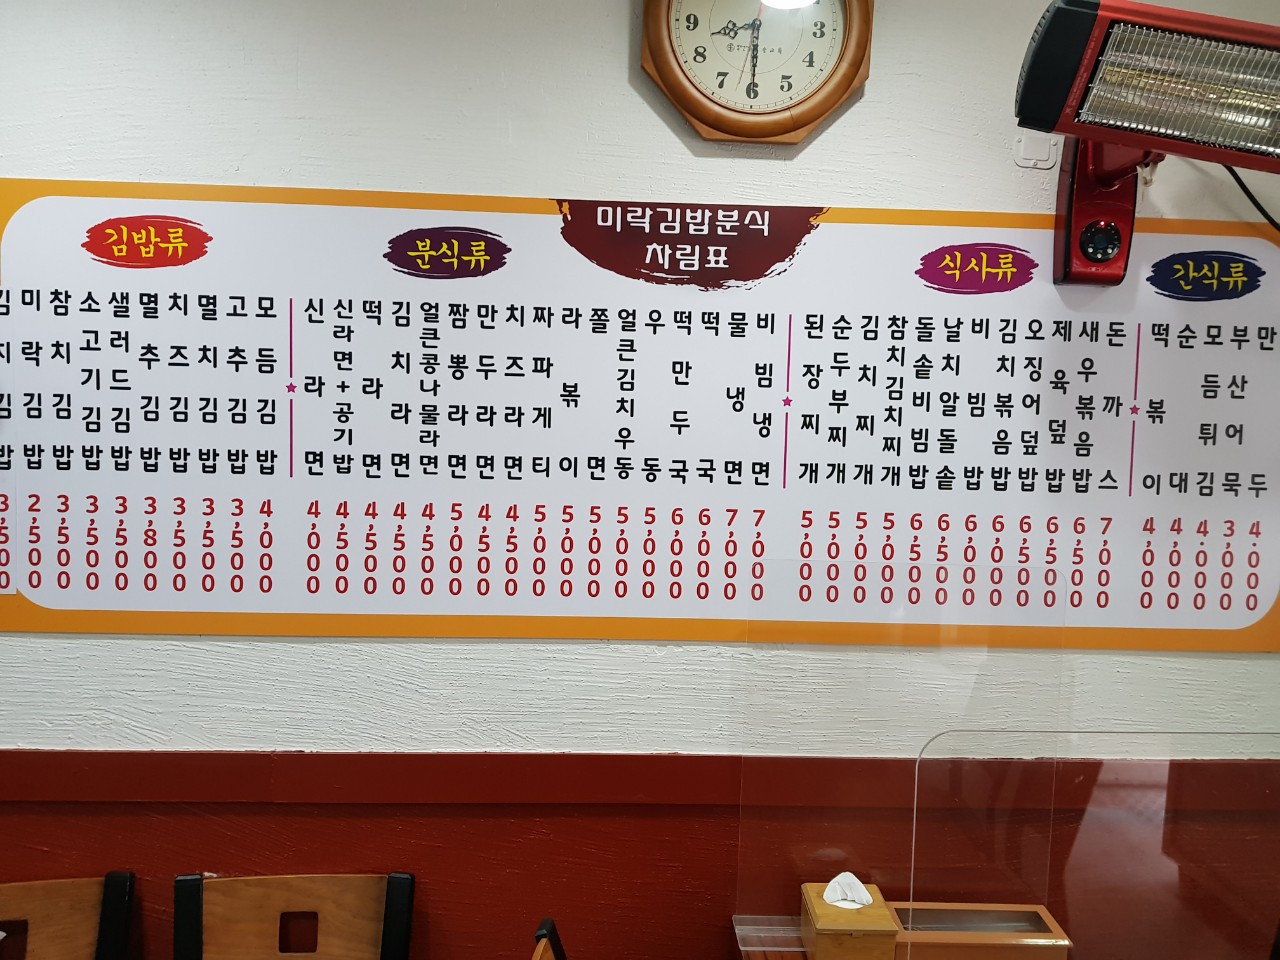 9 8 7 6 5 4 3
미락김밥분식
차림표
김밥류
미락김밥 2,500
참치김밥 3,500
소고기김밥 3,500
샐러드김밥 3,500
멸추김밥 3,800
치즈김밥 3,500
멸치김밥 3,500
고추김밥 3,500
모듬김밥 4,000
분식류
신라면 4,000
신라면+공기밥 4,500
떡라면 4,500
김치라면 4,500
얼큰콩나물라면 4,500
짬뽕라면 5,000
만두라면 4,500
치즈라면 4,500
짜파게티 5,000
라볶이 5,000
쫄면 5,000
얼큰김치우동 5,500
우동 5,000
떡만두국 6,000
떡국 6,000
물냉면 7,000
비빔냉면 7,000
식사류
된장찌개 5,000
순두부찌개 5,000
김치찌개 5,000
참치김치찌개 5,000
돌솥비빔밥 6,500
날치알돌솥 6,500
비빔밥 6,000
김치볶음밥 6,000
오징어덮밥 6,500
제육덮밥 6,500
새우볶음밥 6,500
돈까스 7,000
간식류
떡볶이 4,000
순대 4,000
모듬튀김 4.000
부산어묵 3,000
만두 4.000